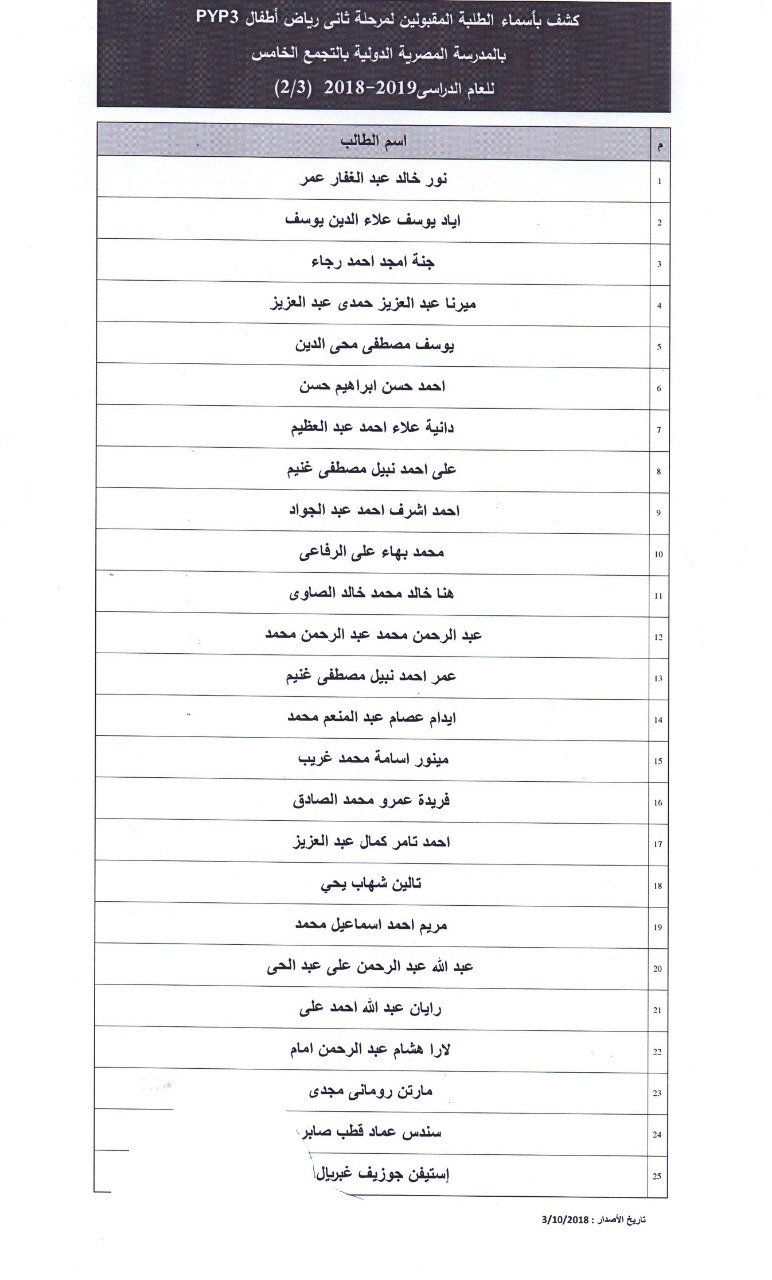 كشف بأسماء الطلبة المقبولين لمرحلة ثانى رياض أطفال PYP3
بالمدرسة المصرية الدولية بالتجمع الخامس
للعام الدراسى2019-2018 (2/3)
م اسم الطالب
1 نور خالد عبد الغفار عمر
2 اياد يوسف علاء الدين يوسف
3 جنة امجد احمد رجاء
4 ميرنا عبد العزيز حمدى عبد العزيز
5 يوسف مصطفى محى الدين
6 احمد حسن ابراهيم حسن
7 دانية علاء احمد عبد العظيم
8 على احمد نبيل مصطفى غنيم
9 احمد اشرف احمد عبد الجواد
10 محمد بهاء على الرفاعى
11 هنا خالد محمد خالد الصاوى
12 عبد الرحمن محمد عبد الرحمن محمد
13 عمر احمد نبيل مصطفى غنيم
14 ايدام عصام عبد المنعم محمد
15 مينور اسامة محمد غريب
16 فريدة عمرو محمد الصادق
17 احمد تامر كمال عبد العزيز
18 تالين شهاب يحي
19 مريم احمد اسماعيل محمد
20 عبد الله عبد الرحمن على عبد الحى
21 رايان عبد الله احمد على
22 لارا هشام عبد الرحمن امام
23 مارتن رومانى مجدى
24 سندس عماد قطب صابر
25 إستيفن جوزيف غبريال
تاريخ الأصدار : 3/10/2018